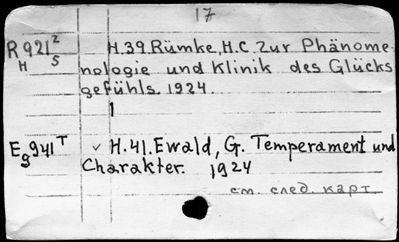 17
R921 2/5 H.39 Rümke, H.C. Zur Phänome-
H nologie und Klinik des Glücks
gefühls. 1924.
1
Eg941 T ✓ H.41. Ewald, G. Temperament und
Charakter. 1924
см. след. карт.